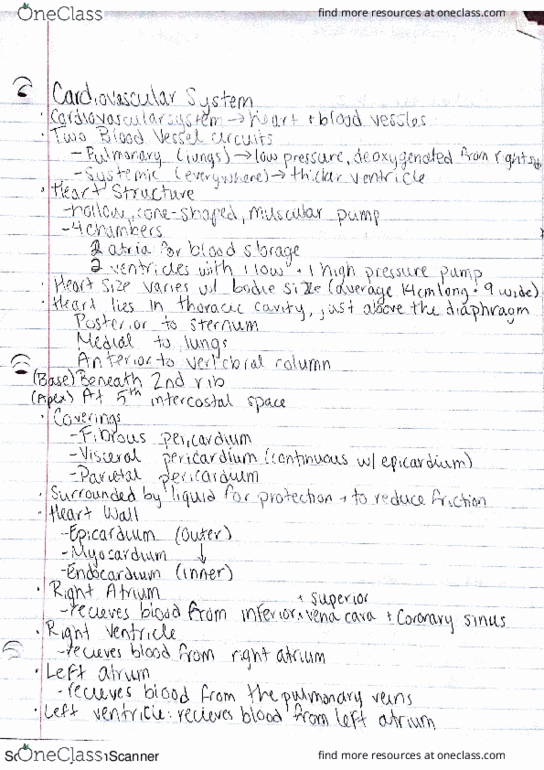 OneClass find more resources at oneclass.com
Cardiovascular System
· Cardiovascular system → heart + blood vessles
· Two Blood Vessel circuits
- Pulmonary (lungs) → low pressure, deoxygenated from right
- Systemic (everywhere) → thicker ventricle
· Heart Structure
- hollow, cone-shaped, muscular pump
- 4 chambers
2 atria for blood storage
2 ventricles with 1 low + 1 high pressure pump
· Heart Size varies w/ bodie size (average 14cm long + 9 wide)
· Heart lies in thoracic cavity, just above the diaphragm
Posterior to sternum
Medial to lungs
Anterior to vertebral column
(Base) Beneath 2nd rib
(Apex) At 5th intercostal space
· Coverings
- Fibrous pericardium
- Visceral pericardium (continuous w/ epicardium)
- Parietal pericardium
· Surrounded by liquid for protection + to reduce friction
· Heart Wall
- Epicardium (outer)
- Myocardium ↓
- Endocardium (inner)
· Right Atrium
+ superior
- recieves blood from inferior ^ vena cava + coronary sinus
· Right ventricle
- recieves blood from right atrium
· Left atrium
- recieves blood from the pulmonary veins
· Left ventricle: recieves blood from left atrium
OneClass Scanner find more resources at oneclass.com